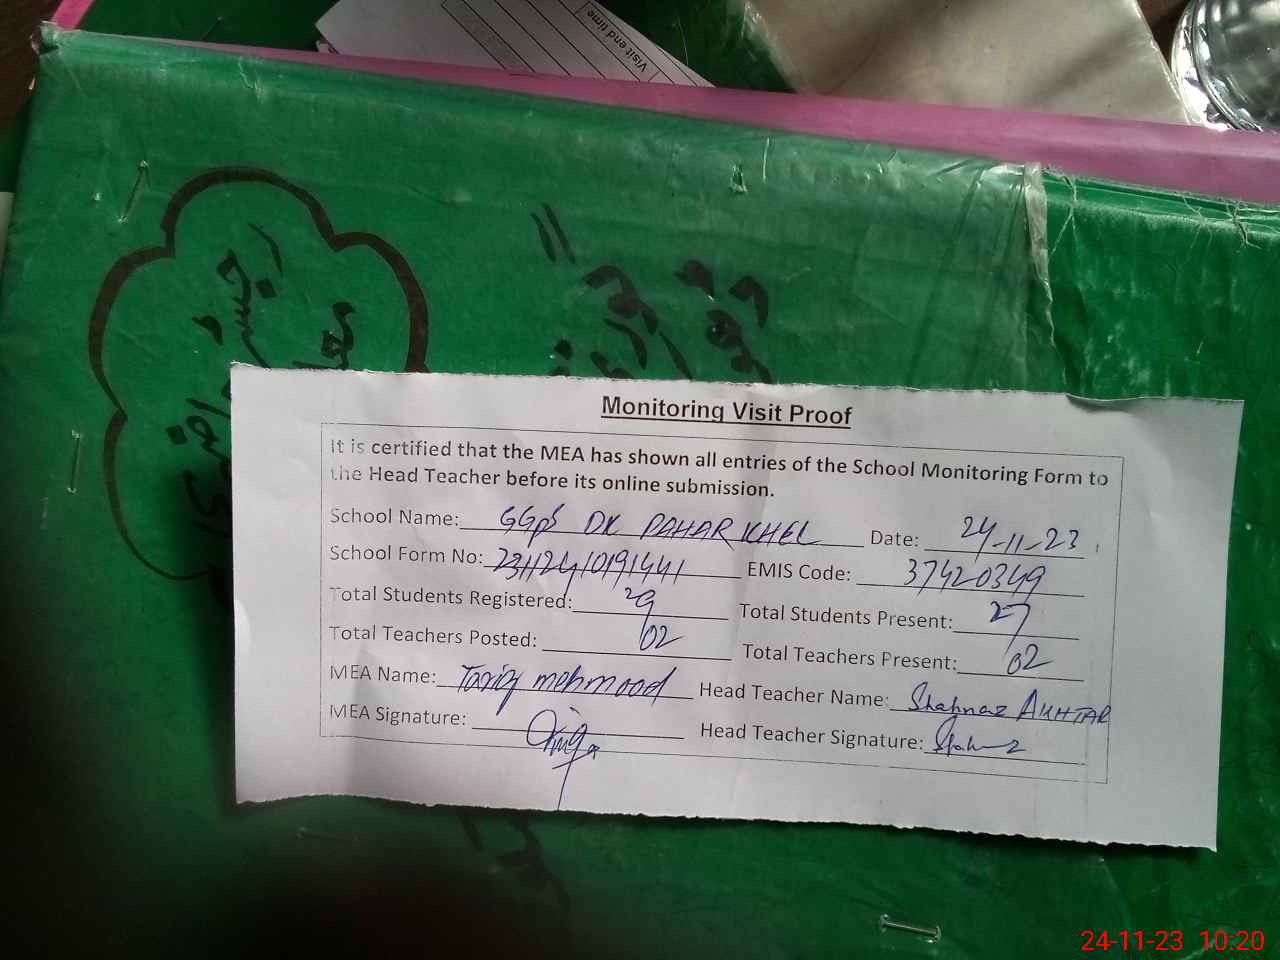 Visit end time
Monitoring Visit Proof
It is certified that the MEA has shown all entries of the School Monitoring Form to
the Head Teacher before its online submission.
School Name: GGPS DK PAHAR KHEL Date: 24-11-23
School Form No: 23112410191441 EMIS Code: 37420349
Total Students Registered: 29 Total Students Present: 27
Total Teachers Posted: 02 Total Teachers Present: 02
MEA Name: Tariq mehmood Head Teacher Name: Shahnaz AKHTAR
MEA Signature: Head Teacher Signature:
24-11-23 10:20